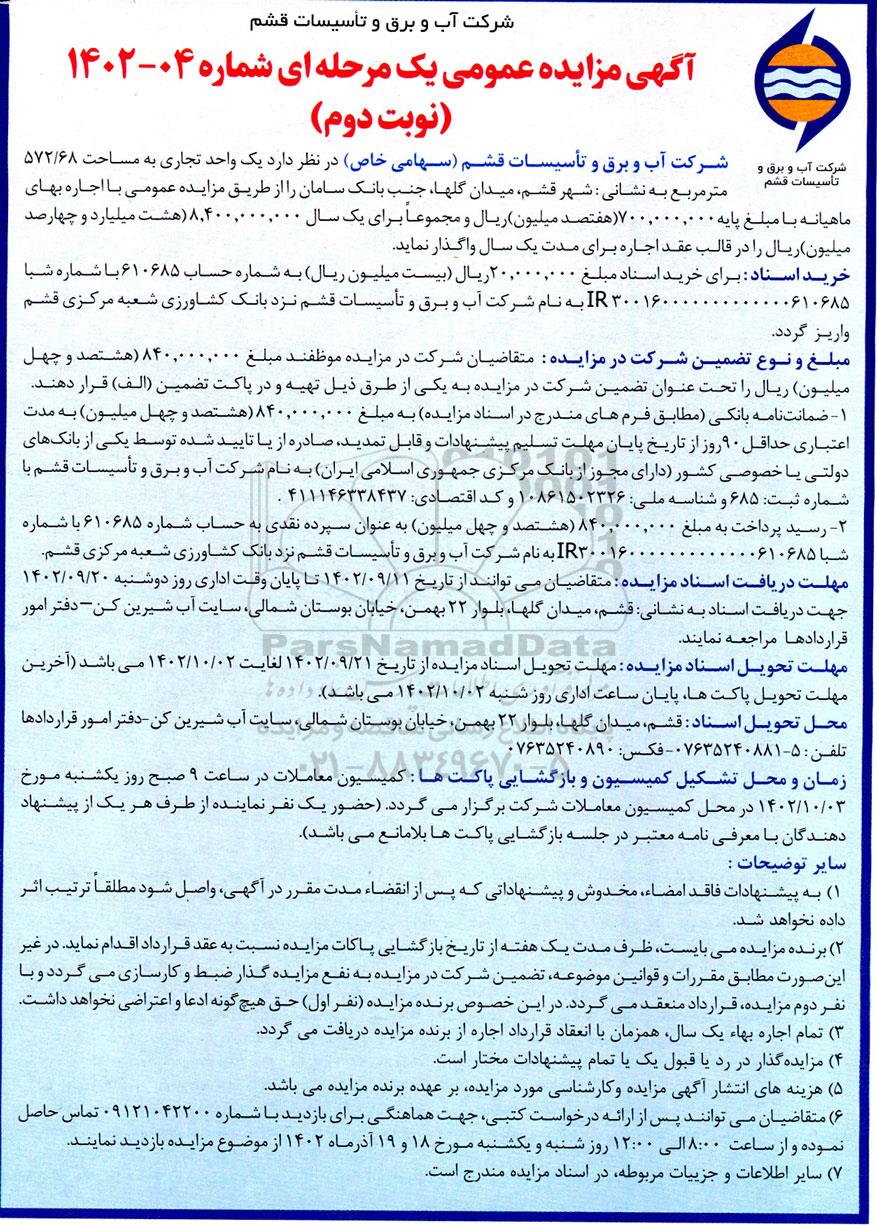 شرکت آب و برق و تأسیسات قشم
آگهی مزایده عمومی یک مرحله ای شماره ۰۴-۱۴۰۲
(نوبت دوم)
شرکت آب و برق و
تأسیسات قشم
شرکت آب و برق و تأسیسات قشم (سهامی خاص) در نظر دارد یک واحد تجاری به مساحت ۵۷۲/۶۸
مترمربع به نشانی : شهر قشم، میدان گلها، جنب بانک سامان را از طریق مزایده عمومی با اجاره بهای
ماهیانه با مبلغ پایه ۷۰۰,۰۰۰,۰۰۰(هفتصد میلیون)ریال و مجموعاً برای یک سال ۸,۴۰۰,۰۰۰,۰۰۰(هشت میلیارد و چهارصد
میلیون)ریال را در قالب عقد اجاره برای مدت یک سال واگذار نماید.
خرید اسناد : برای خرید اسناد مبلغ ۲۰,۰۰۰,۰۰۰ریال (بیست میلیون ریال) به شماره حساب ۶۱۰۶۸۵ با شماره شبا
به نام شرکت آب و برق و تأسیسات قشم نزد بانک کشاورزی شعبه مرکزی قشم
واریز گردد.
مبلغ و نوع تضمین شرکت در مزایده : متقاضیان شرکت در مزایده موظفند مبلغ ۸۴۰,۰۰۰,۰۰۰ (هشتصد و چهل
میلیون) ریال را تحت عنوان تضمین شرکت در مزایده به یکی از طرق ذیل تهیه و در پاکت تضمین (الف) قرار دهند.
۱- ضمانت‌نامه بانکی (مطابق فرم های مندرج در اسناد مزایده) به مبلغ ۸۴۰,۰۰۰,۰۰۰ (هشتصد و چهل میلیون) به مدت
اعتباری حداقل ۹۰ روز از تاریخ پایان مهلت تسلیم پیشنهادات و قابل تمدید، صادره از یا تایید شده توسط یکی از بانک‌های
دولتی یا خصوصی کشور (دارای مجوز از بانک مرکزی جمهوری اسلامی ایران) به نام شرکت آب و برق و تأسیسات قشم با
شماره ثبت: ۶۸۵ و شناسه ملی: ۱۰۸۶۱۵۰۲۳۲۶ و کد اقتصادی: ۴۱۱۱۴۶۳۳۸۴۳۷ .
۲- رسید پرداخت به مبلغ ۸۴۰,۰۰۰,۰۰۰ (هشتصد و چهل میلیون) به عنوان سپرده نقدی به حساب شماره ۶۱۰۶۸۵ با شماره
شبا به نام شرکت آب و برق و تأسیسات قشم نزد بانک کشاورزی شعبه مرکزی قشم.
مهلت دریافت اسناد مزایده : متقاضیان می توانند از تاریخ ۱۴۰۲/۰۹/۱۱ تا پایان وقت اداری روز دوشنبه ۱۴۰۲/۰۹/۲۰
جهت دریافت اسناد به نشانی: قشم، میدان گلها، بلوار ۲۲ بهمن، خیابان بوستان شمالی، سایت آب شیرین کن–دفتر امور
قراردادها مراجعه نمایند.
مهلت تحویل اسناد مزایده : مهلت تحویل اسناد مزایده از تاریخ ۱۴۰۲/۰۹/۲۱ لغایت ۱۴۰۲/۱۰/۰۲ می باشد (آخرین
مهلت تحویل پاکت ها، پایان ساعت اداری روز شنبه ۱۴۰۲/۱۰/۰۲ می باشد).
محل تحویل اسناد : قشم، میدان گلها، بلوار ۲۲ بهمن، خیابان بوستان شمالی، سایت آب شیرین کن-دفتر امور قراردادها
تلفن : ۵-۰۷۶۳۵۲۴۰۸۸۱-فکس: ۰۷۶۳۵۲۴۰۸۹۰
زمان و محل تشکیل کمیسیون و بازگشایی پاکت ها : کمیسیون معاملات در ساعت ۹ صبح روز یکشنبه مورخ
۱۴۰۲/۱۰/۰۳ در محل کمیسیون معاملات شرکت برگزار می گردد. (حضور یک نفر نماینده از طرف هر یک از پیشنهاد
دهندگان با معرفی نامه معتبر در جلسه بازگشایی پاکت ها بلامانع می باشد).
سایر توضیحات :
۱) به پیشنهادات فاقد امضاء، مخدوش و پیشنهاداتی که پس از انقضاء مدت مقرر در آگهی، واصل شود مطلقاً ترتیب اثر
داده نخواهد شد.
۲) برنده مزایده می بایست، ظرف مدت یک هفته از تاریخ بازگشایی پاکات مزایده نسبت به عقد قرارداد اقدام نماید. در غیر
این‌صورت مطابق مقررات و قوانین موضوعه، تضمین شرکت در مزایده به نفع مزایده گذار ضبط و کارسازی می گردد و با
نفر دوم مزایده، قرارداد منعقد می گردد. در این خصوص برنده مزایده (نفر اول) حق هیچ‌گونه ادعا و اعتراضی نخواهد داشت.
۳) تمام اجاره بهاء یک سال، همزمان با انعقاد قرارداد اجاره از برنده مزایده دریافت می گردد.
۴) مزایده‌گذار در رد یا قبول یک یا تمام پیشنهادات مختار است.
۵) هزینه های انتشار آگهی مزایده وکارشناسی مورد مزایده، بر عهده برنده مزایده می باشد.
۶) متقاضیان می توانند پس از ارائه درخواست کتبی، جهت هماهنگی برای بازدید با شماره ۰۹۱۲۱۰۴۲۲۰۰ تماس حاصل
نموده و از ساعت ۸:۰۰ الی ۱۲:۰۰ روز شنبه و یکشنبه مورخ ۱۸ و ۱۹ آذرماه ۱۴۰۲ از موضوع مزایده بازدید نمایند.
۷) سایر اطلاعات و جزییات مربوطه، در اسناد مزایده مندرج است.
ParsNamadData
۰۲۱-۸۸۳۴۹۶۷۰-۵